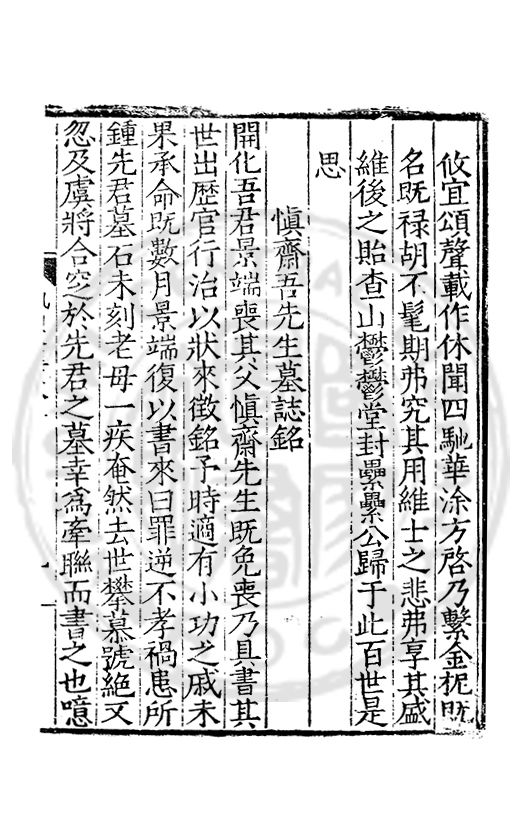 攸宜頌聲載作休聞四馳華涂方啓乃繫金柅既
名既祿胡不髦期弗究其用維士之悲弗享其盛
維後之貽查山鬱鬱堂封纍纍公歸于此百世是
思
慎齋吾先生墓誌銘
開化吾君景端喪其父慎齋先生既免喪乃具書其
世出歷官行治以狀來徵銘予時適有小功之戚未
果承命既數月景端復以書來曰罪逆不孝禍患所
鍾先君墓石未刻老母一疾奄然去世攀慕號絕又
忽及虞將合窆於先君之墓幸為牽聯而書之也噫